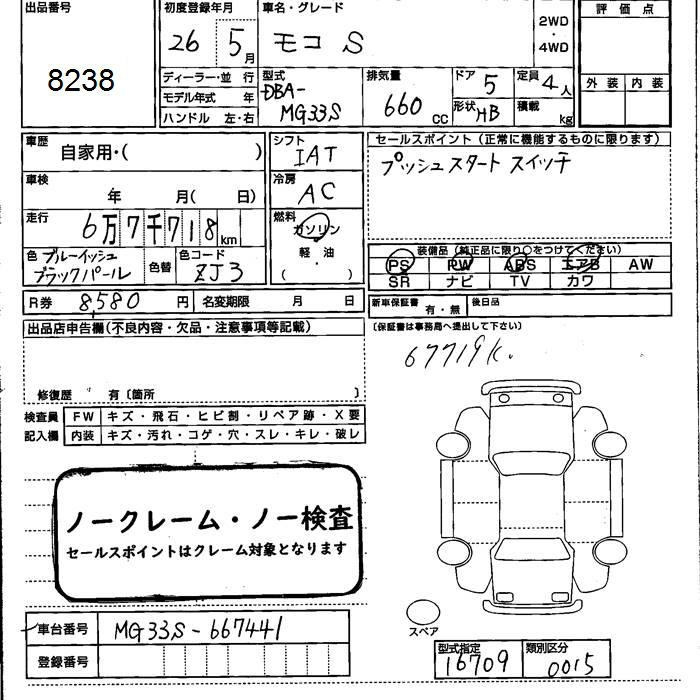 出品番号
8238
初度登録年月
26 5月
車名・グレード
モコ S
2WD
・
4WD
評価点
外装 内装
ディーラー・並行
モデル年式 年
ハンドル 左・右
型式
DBA-
MG33S
排気量
660 CC
ドア 5
形状 HB
定員 4人
積載 kg
車歴
自家用・( )
シフト
IAT
セールスポイント (正常に機能するものに限ります)
プッシュスタート スイッチ
車検
年 月( 日)
冷房
AC
走行
6万7千718km
燃料
ガソリン
・
軽・油
( )
色 ブルーイッシュ
ブラックパール
色替
色コード
ZJ3
装備品 (純正品に限り○をつけてください)
PS PW ABS エアB AW
SR ナビ TV カワ
R券 8,580 円 名変期限 月 日
新車保証書 有・無 後日品
出品店申告欄(不良内容・欠品・注意事項等記載)
〔保証書は事務局へ提出して下さい〕
67719K.
修復歴 有〔箇所 〕
検査員 FW キズ・飛石・ヒビ割・リペア跡・X要
記入欄 内装 キズ・汚れ・コゲ・穴・スレ・キレ・破レ
ノークレーム・ノー検査
セールスポイントはクレーム対象となります
車台番号 MG33S-667441
登録番号
スペア
型式指定 16709
類別区分 0015